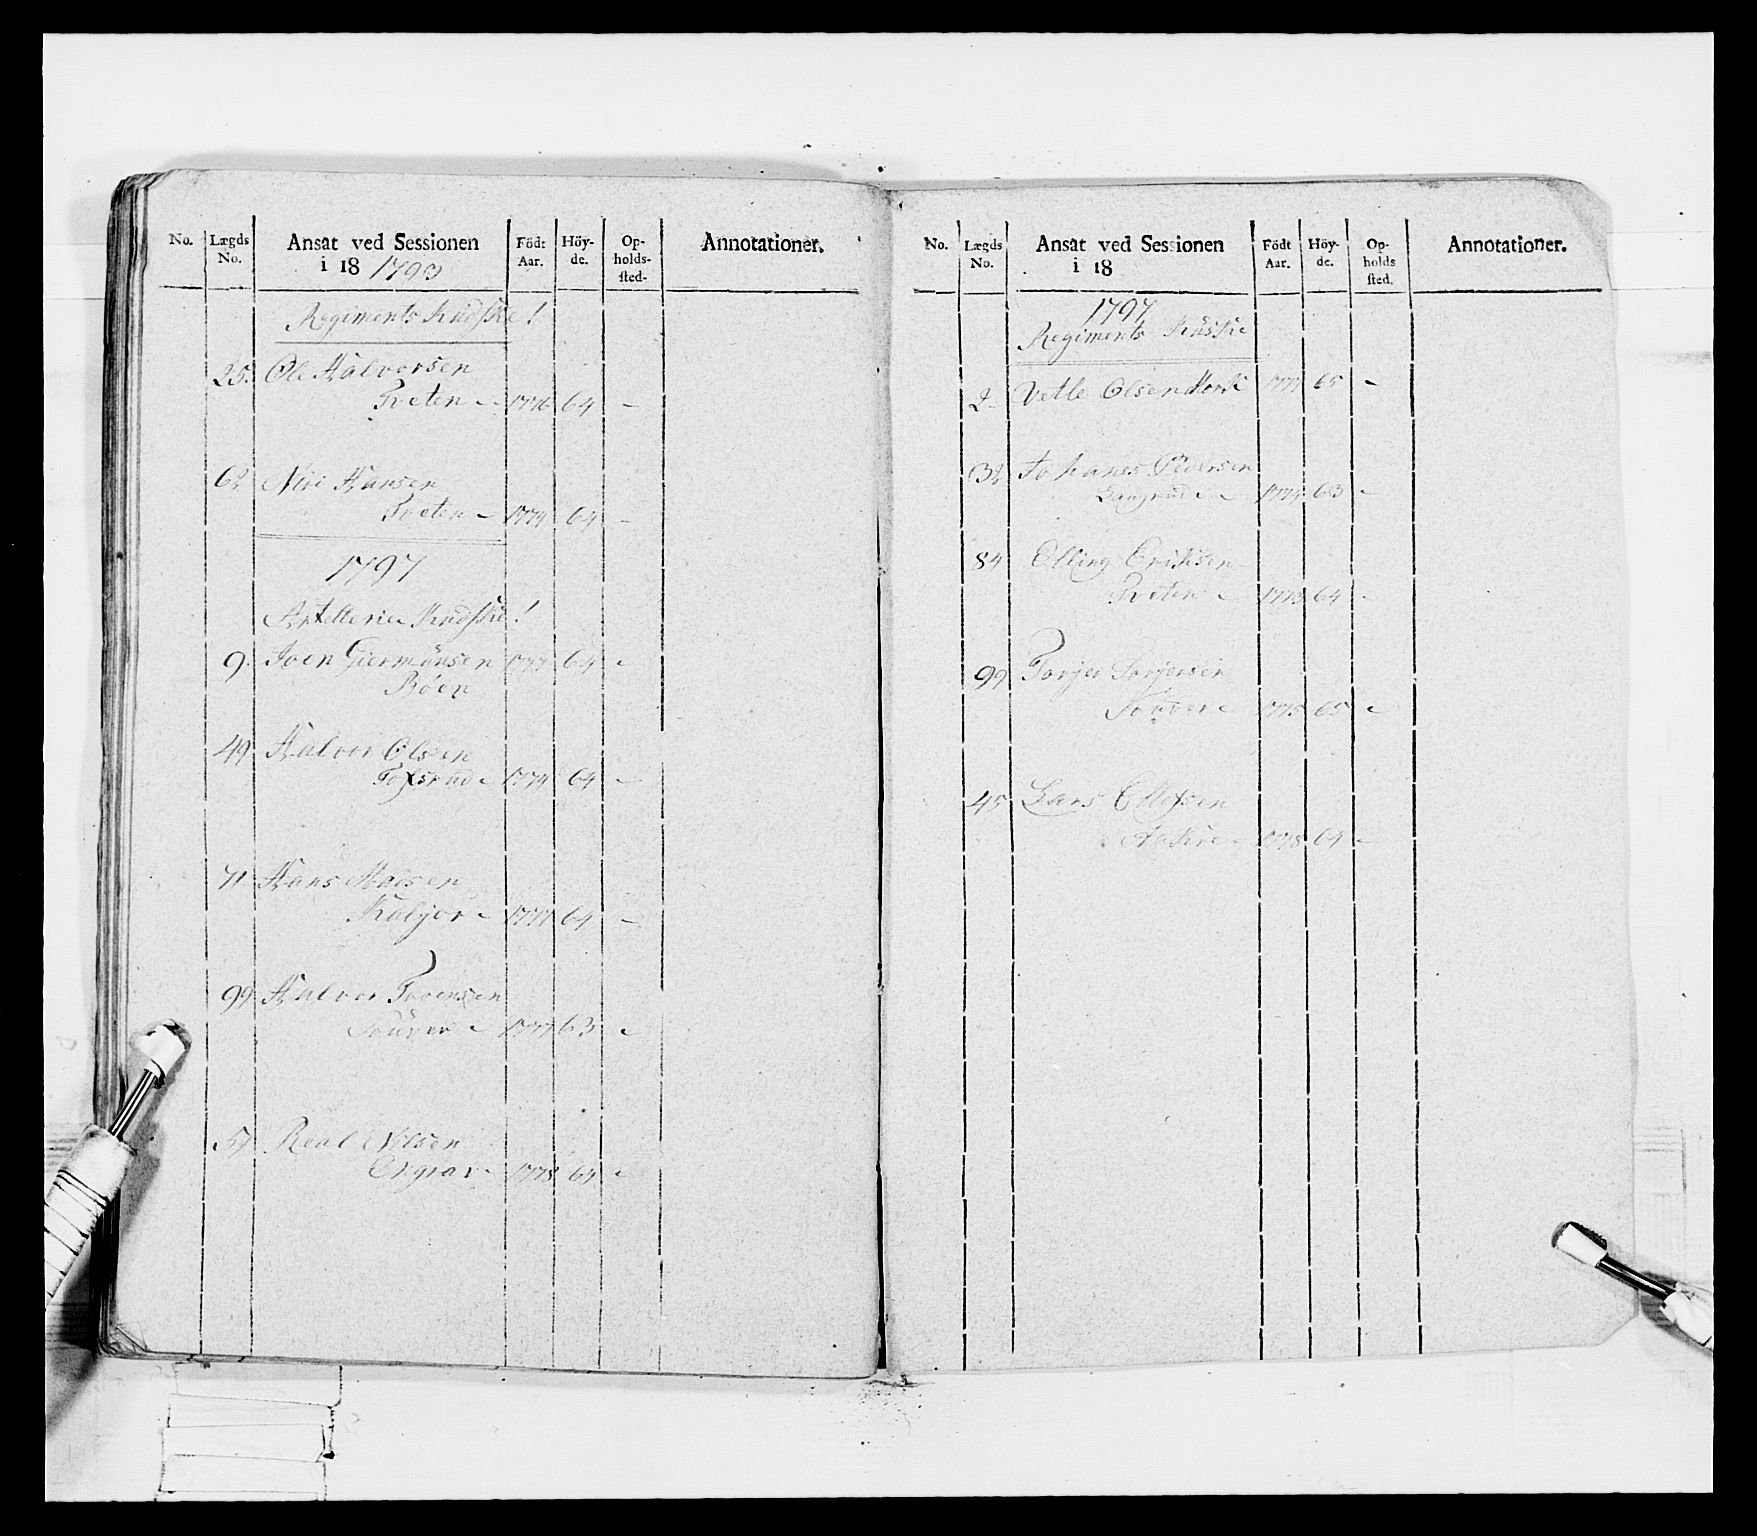 No. Lægds No. Ansat ved Sessionen i 18 1793 Födt Aar. Höy- de. Op- holds- sted- Annotationer.
Regiments Kudske!
25. Ole Halvorsen
Tveten - 1776 64 -
62 Hansen
Tveten - 1774 64 -
1797
Artellerie Kudske!
9. Joen Giermünsen 1777 64 -
Böen
49 Halvor Olsen
Tofsrud - 1774 64 -
71 Hans
Kaljor - 1777 64 -
99 Halvor Tovensen
1777 63 -
57 Nilsen
1778 64 -
No. Lægds No. Ansat ved Sessionen i 18 Födt Aar. Höy- de. Op- holds sted. Annotationer.
1797
Regiments Kuske
2- Vetle Olsen 1777 65 -
32 Johanes Pedersen
Langrud - 1774 63 -
84 Elling Eriksen
Tveten - 1773 64 -
99 Torjer Torjersen
1775 65 -
45 Lars Ellefsen
1778 64 -